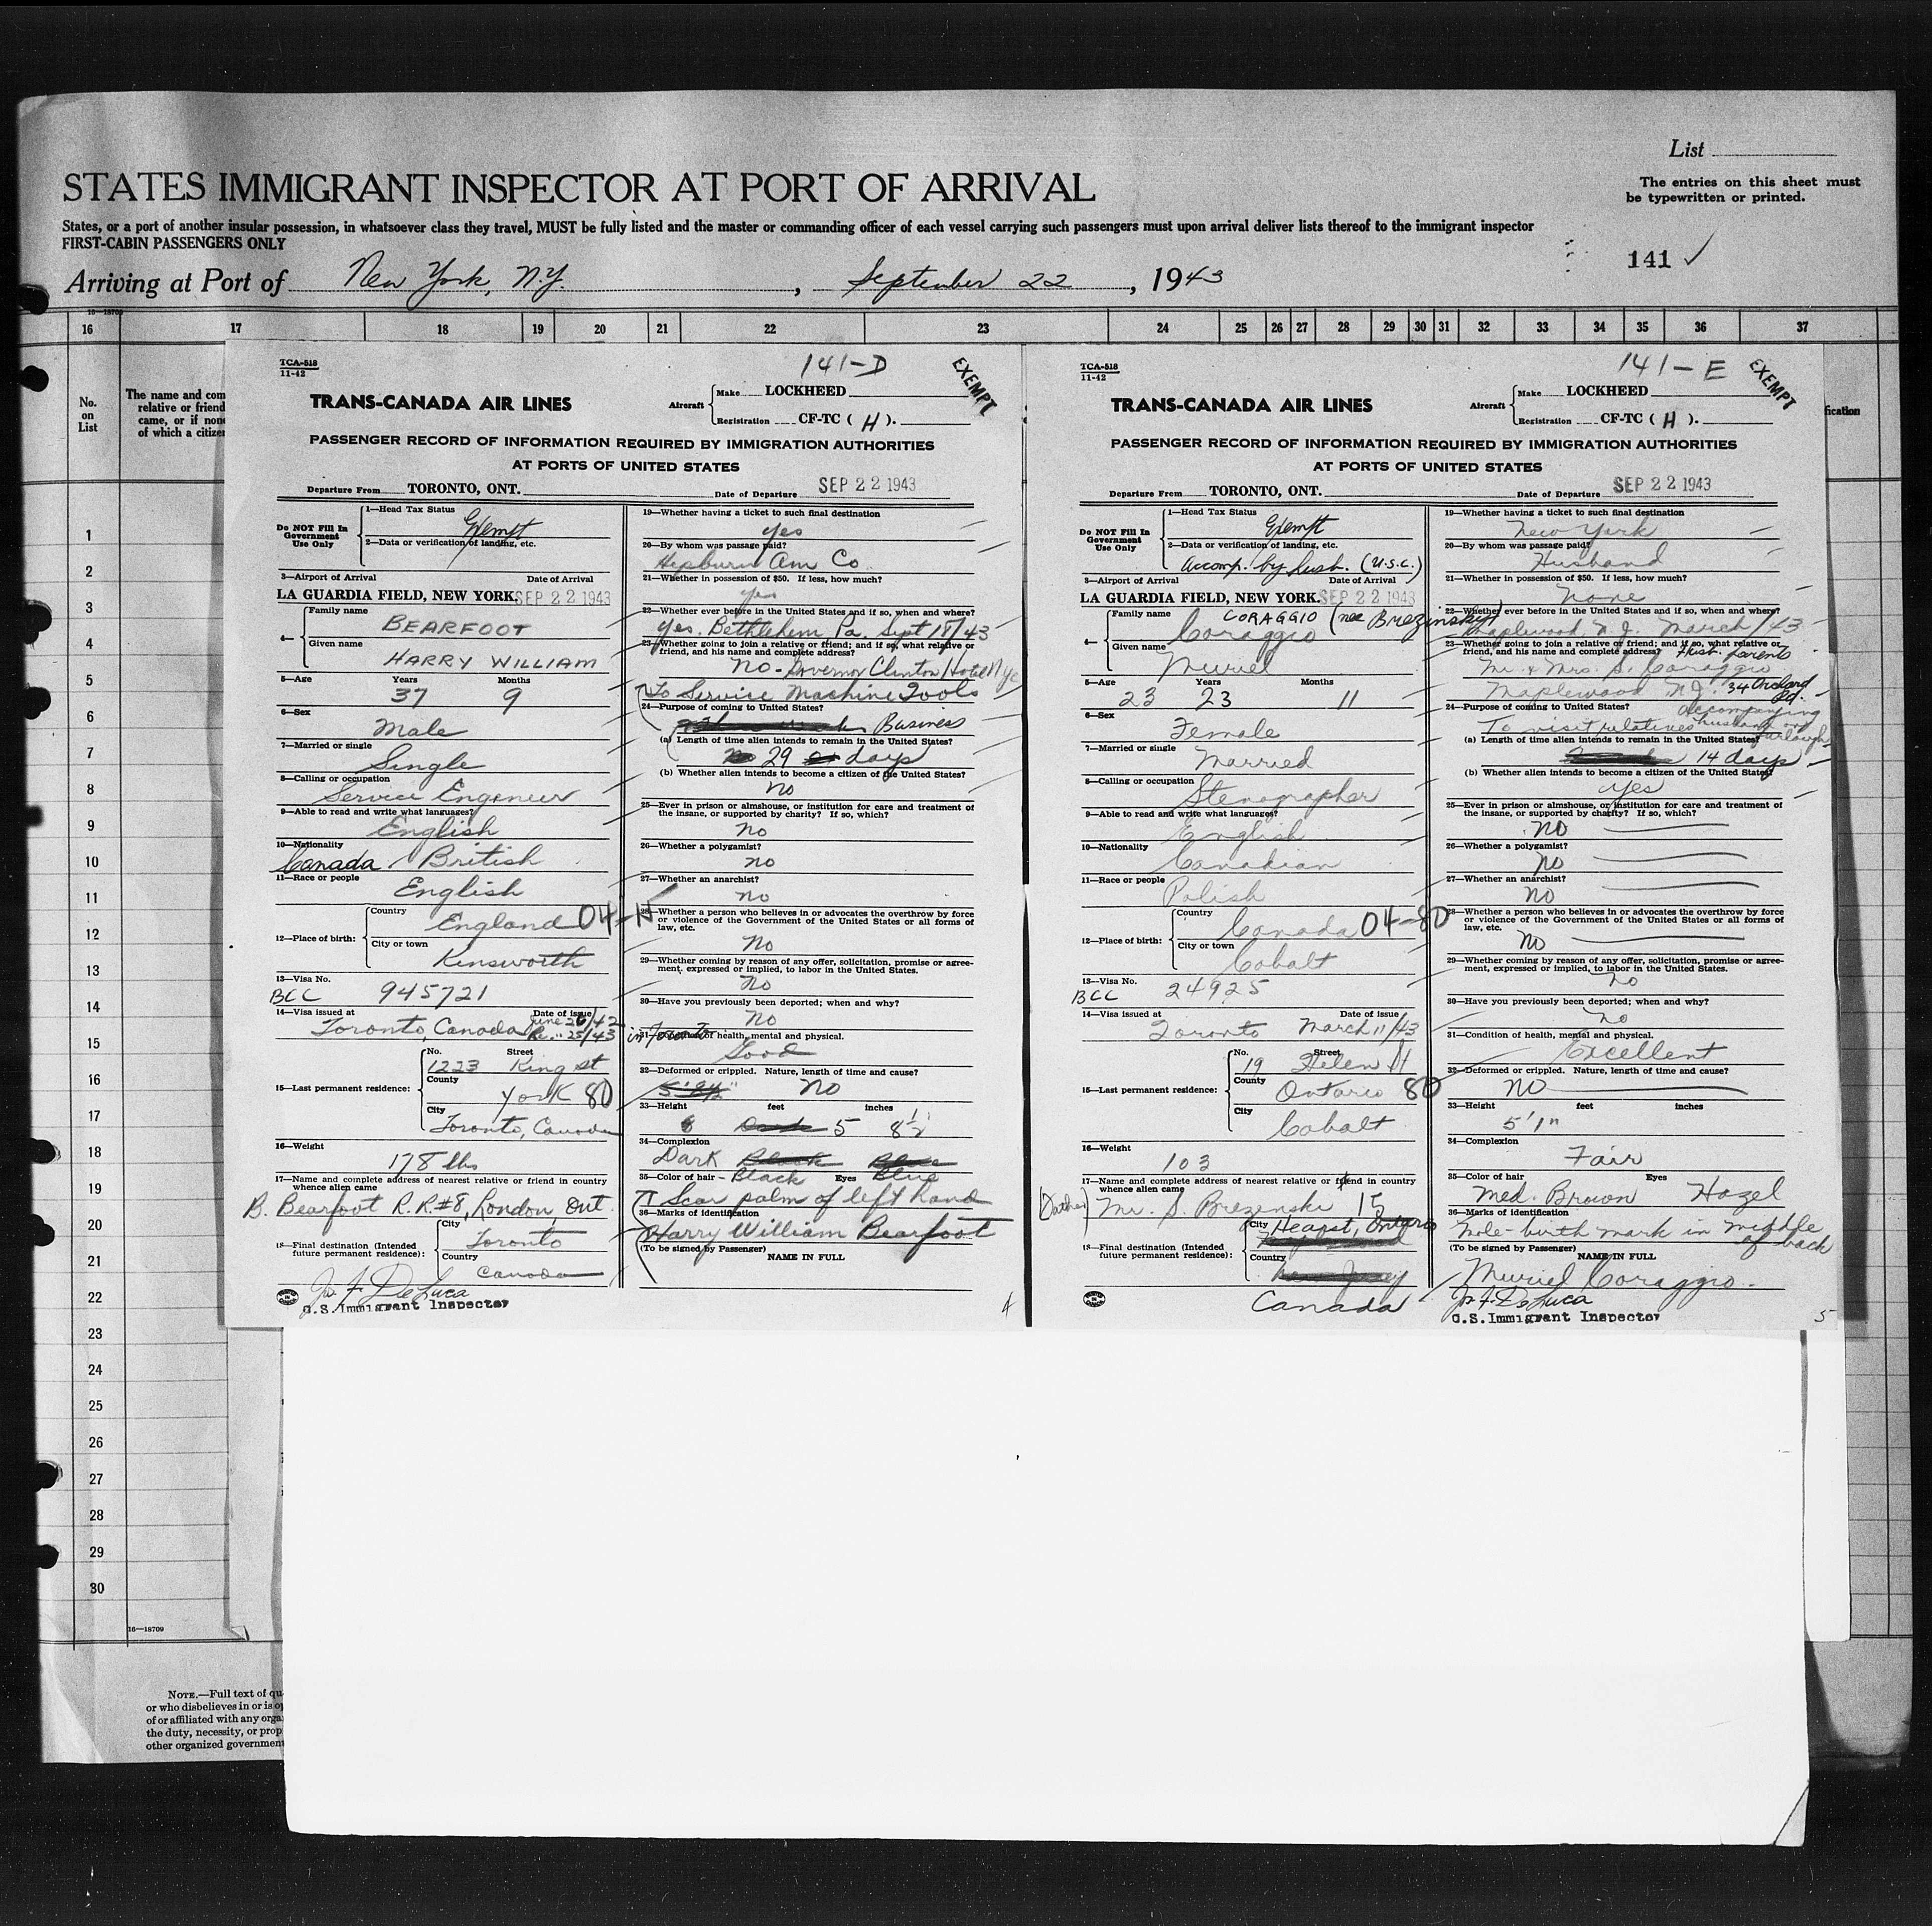 List
STATES IMMIGRANT INSPECTOR AT PORT OF ARRIVAL
The entries on this sheet must
be typewritten or printed.
States, or a port of another insular possession, in whatsoever class they travel, MUST be fully listed and the master or commanding officer of each vessel carrying such passengers must upon arrival deliver lists thereof to the immigrant inspector
FIRST-CABIN PASSENGERS ONLY
141 ✓
Arriving at Port of New York, N.Y., September 22, 1943
16 17 18 19 20 21 22 23 24 25 26 27 28 29 30 31 32 33 34 35 36 37
No.
on
List
The name and com
relative or friend
came, or if none
of which a citize
1
2
3
4
5
6
7
8
9
10
11
12
13
14
15
16
17
18
19
20
21
22
23
24
25
26
27
28
29
30
16—18709
NOTE.—Full text of qu
or who disbelieves in or is o
of or affiliated with any orga
the duty, necessity, or prop
other organized government
TCA-518
11-42
141-D
EXEMPT
TRANS-CANADA AIR LINES
Aircraft
Make LOCKHEED
Registration CF-TC ( H ).
PASSENGER RECORD OF INFORMATION REQUIRED BY IMMIGRATION AUTHORITIES
AT PORTS OF UNITED STATES
Departure From TORONTO, ONT. Date of Departure SEP 22 1943
Do NOT Fill In
Government
Use Only
1—Head Tax Status
Exempt
2—Data or verification of landing, etc.
3—Airport of Arrival Date of Arrival
LA GUARDIA FIELD, NEW YORK. SEP 22 1943
4—
Family name
BEARFOOT
Given name
HARRY WILLIAM
5—Age Years Months
37 9
6—Sex
Male
7—Married or single
Single
8—Calling or occupation
Service Engineer
9—Able to read and write what languages?
English
10—Nationality
Canada / British
11—Race or people
English
12—Place of birth:
Country
England 04-15
City or town
Kensworth
13—Visa No.
BCC 945721
14—Visa issued at Date of issue
Toronto, Canada June 26/42
Re. " 25/43 in Toronto
15—Last permanent residence:
No. Street
1223 King St
County
York 80
City
Toronto, Canada
16—Weight
178 lbs
17—Name and complete address of nearest relative or friend in country
whence alien came
B. Bearfoot R.R.#8, London Ont.
18—Final destination (Intended
future permanent residence):
City
Toronto
Country
Canada
Jos. F. DeLuca
U.S. Immigrant Inspector
19—Whether having a ticket to such final destination
yes
20—By whom was passage paid?
Hepburn Am Co
21—Whether in possession of $50. If less, how much?
yes
22—Whether ever before in the United States and if so, when and where?
yes. Bethlehem Pa. Sept 18/43
23—Whether going to join a relative or friend; and if so, what relative or
friend, and his name and complete address?
No - Governor Clinton Hotel Nyc
To Service Machine Tools
24—Purpose of coming to United States?
Business
(a) Length of time alien intends to remain in the United States?
29 days
(b) Whether alien intends to become a citizen of the United States?
No
25—Ever in prison or almshouse, or institution for care and treatment of
the insane, or supported by charity? If so, which?
No
26—Whether a polygamist?
no
27—Whether an anarchist?
no
28—Whether a person who believes in or advocates the overthrow by force
or violence of the Government of the United States or all forms of
law, etc.
No
29—Whether coming by reason of any offer, solicitation, promise or agree-
ment, expressed or implied, to labor in the United States.
No
30—Have you previously been deported; when and why?
No
31—Condition of health, mental and physical.
Good
32—Deformed or crippled. Nature, length of time and cause?
No
33—Height feet inches
5 8½
34—Complexion
Dark
35—Color of hair - Black Eyes Blue
Scar palm of left hand
36—Marks of identification
Harry William Bearfoot
(To be signed by Passenger) NAME IN FULL
4
TCA-518
11-42
141-E
EXEMPT
TRANS-CANADA AIR LINES
Aircraft
Make LOCKHEED
Registration CF-TC ( H ).
PASSENGER RECORD OF INFORMATION REQUIRED BY IMMIGRATION AUTHORITIES
AT PORTS OF UNITED STATES
Departure From TORONTO, ONT. Date of Departure SEP 22 1943
Do NOT Fill In
Government
Use Only
1—Head Tax Status
Exempt
2—Data or verification of landing, etc.
Accomp. by husb. (U.S.C.)
3—Airport of Arrival Date of Arrival
LA GUARDIA FIELD, NEW YORK. SEP 22 1943
4—
Family name CORAGGIO (nee Brezinski)
Coraggio
Given name
Muriel
5—Age Years Months
23 23 11
6—Sex
Female
7—Married or single
Married
8—Calling or occupation
Stenographer
9—Able to read and write what languages?
English
10—Nationality
Canadian
11—Race or people
Polish
12—Place of birth:
Country
Canada 04-80
City or town
Cobalt
13—Visa No.
BCC 24925
14—Visa issued at Date of issue
Toronto March 11/43
15—Last permanent residence:
No. Street
19 Helen St
County
Ontario 80
City
Cobalt
16—Weight
103
17—Name and complete address of nearest relative or friend in country
whence alien came
(Father) Mr. S. Brezenski 15
18—Final destination (Intended
future permanent residence):
City Hearst, Ontario
Country
Canada
19—Whether having a ticket to such final destination
New York
20—By whom was passage paid?
Husband
21—Whether in possession of $50. If less, how much?
None
22—Whether ever before in the United States and if so, when and where?
Maplewood N.J. March /43
23—Whether going to join a relative or friend; and if so, what relative or
friend, and his name and complete address? Husb. parents
Mr. & Mrs. S. Coraggio
Maplewood N.J. 34 Orchard Rd.
24—Purpose of coming to United States? Accompanying
To visit relatives husband on furlough
(a) Length of time alien intends to remain in the United States?
14 days
(b) Whether alien intends to become a citizen of the United States?
yes
25—Ever in prison or almshouse, or institution for care and treatment of
the insane, or supported by charity? If so, which?
NO
26—Whether a polygamist?
NO
27—Whether an anarchist?
NO
28—Whether a person who believes in or advocates the overthrow by force
or violence of the Government of the United States or all forms of
law, etc.
NO
29—Whether coming by reason of any offer, solicitation, promise or agree-
ment, expressed or implied, to labor in the United States.
No
30—Have you previously been deported; when and why?
No
31—Condition of health, mental and physical.
Excellent
32—Deformed or crippled. Nature, length of time and cause?
NO
33—Height feet inches
5'1"
34—Complexion
Fair
35—Color of hair Eyes
Med. Brown Hazel
36—Marks of identification
Mole - birth mark in middle of back
(To be signed by Passenger) NAME IN FULL
Muriel Coraggio
Jos. F. DeLuca
U.S. Immigrant Inspector
5
fication